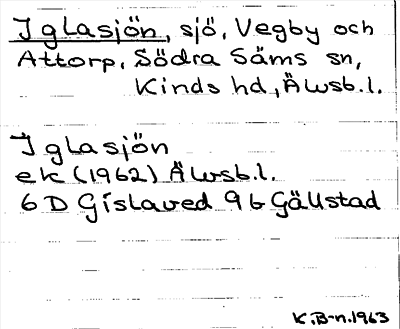 Iglasjön, sjö, Vegby och
Attorp, Södra Säms sn,
Kinds hd, Älvsb.l.
Iglasjön
ek (1962) Älvsb.l.
6 D Gislaved 9 b Gällstad
K.B-n. 1963